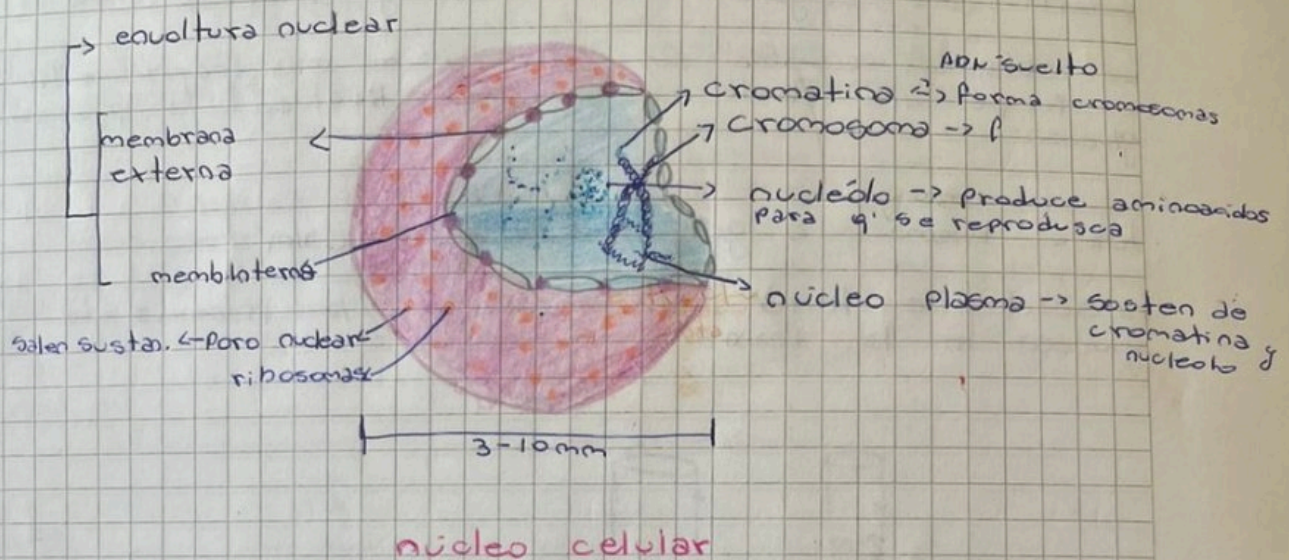 envoltura nuclear
membrana
externa
memb interna
salen sustan. <- poro nuclear
ribosomas
ADN suelto
cromatina => forma cromosomas
cromosoma -> f
nucleólo -> produce aminoacidos
para q' se reprodusca
núcleo plasma -> sosten de
cromatina y
nucleolo
3-10 mm
núcleo celular